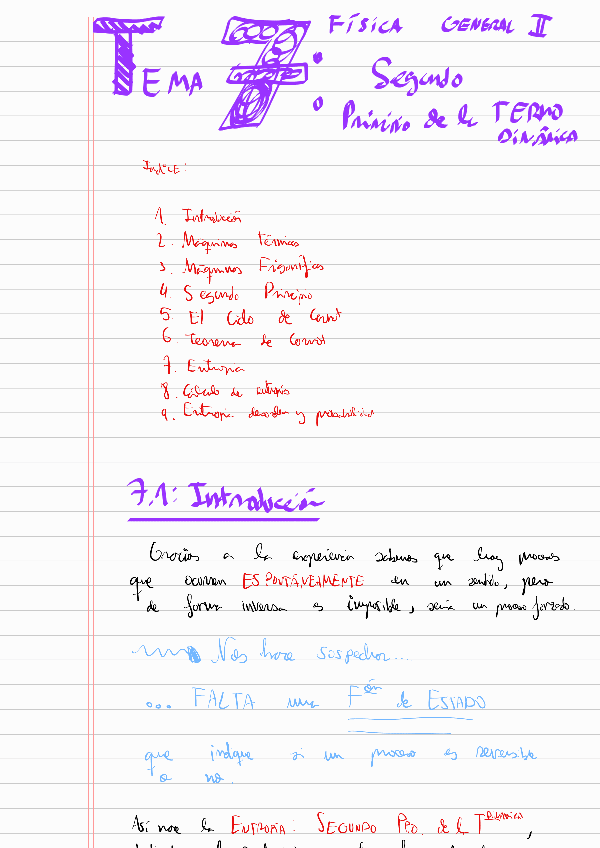 TEMA 7: FÍSICA GENERAL II
Segundo
Principio de la TERMO
DINÁMICA
Índice:
1. Introducción
2. Máquinas Térmicas
3. Máquinas Frigoríficas
4. Segundo Principio
5. El Ciclo de Carnot
6. Teorema de Carnot
7. Entropía
8. Cálculo de entropía
9. Entropía desorden y probabilidad
7.1: Introducción
Gracias a la experiencia sabemos que hay procesos
que ocurren ESPONTÁNEAMENTE en un sentido, pero
de forma inversa es imposible, sería un proceso forzado.
Nos hace sospechar...
... FALTA una Fᶜⁱóⁿ de ESTADO
que indique si un proceso es reversible
o no.
Así nace la ENTROPÍA: SEGUNDO PPO. de la